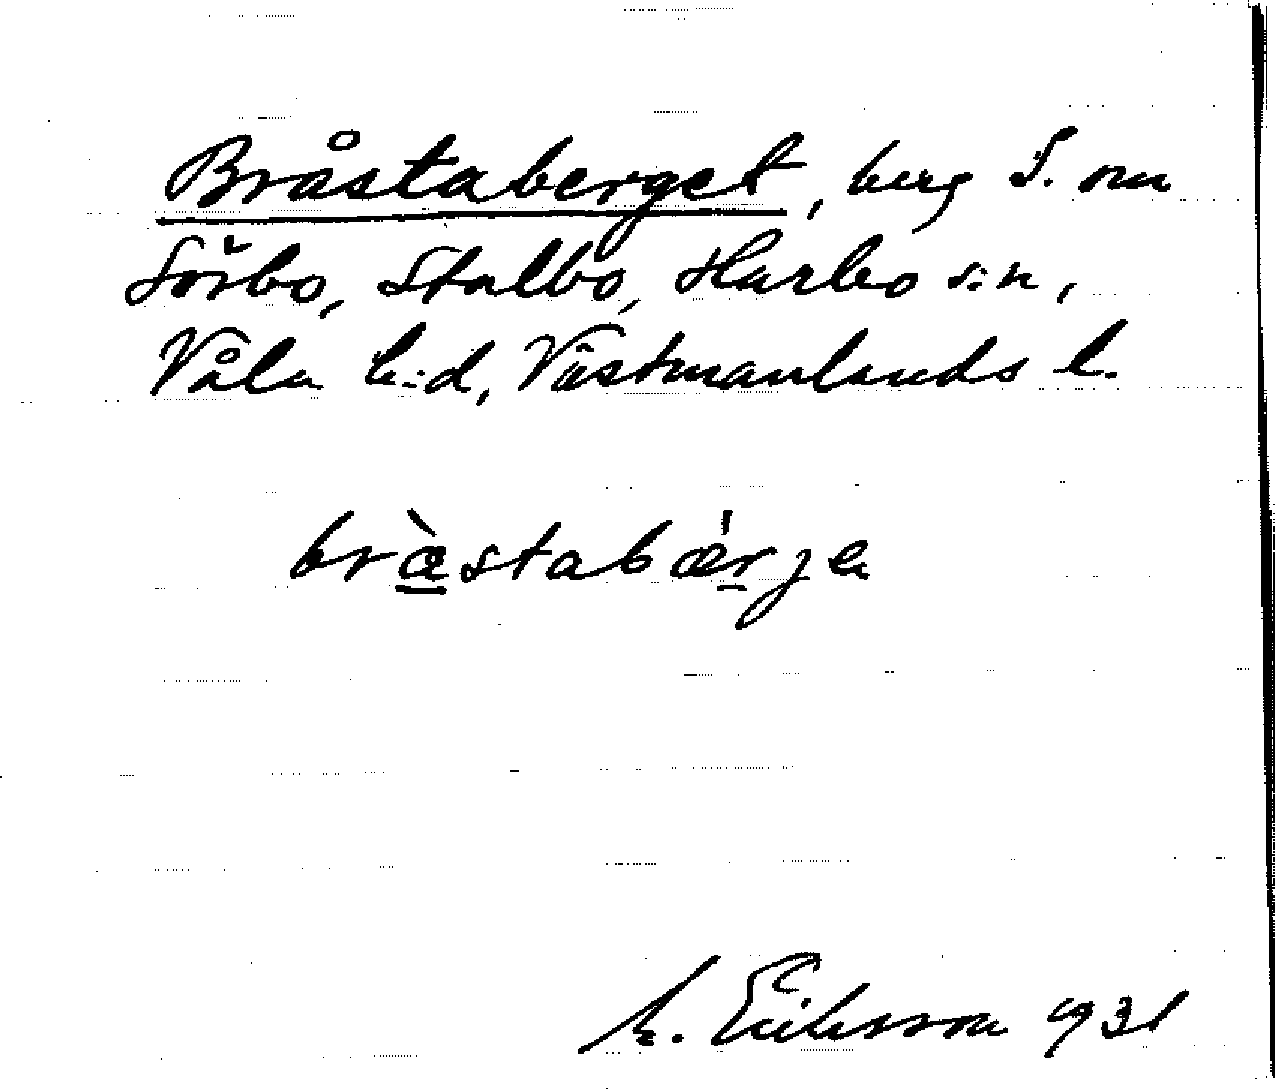 Bråstaberget, berg S. om
Sörbo, Stalbo, Harbo s:n,
Våla h:d, Västmanlands l.
bræ̀stabǽrja
M. Eriksson 1931